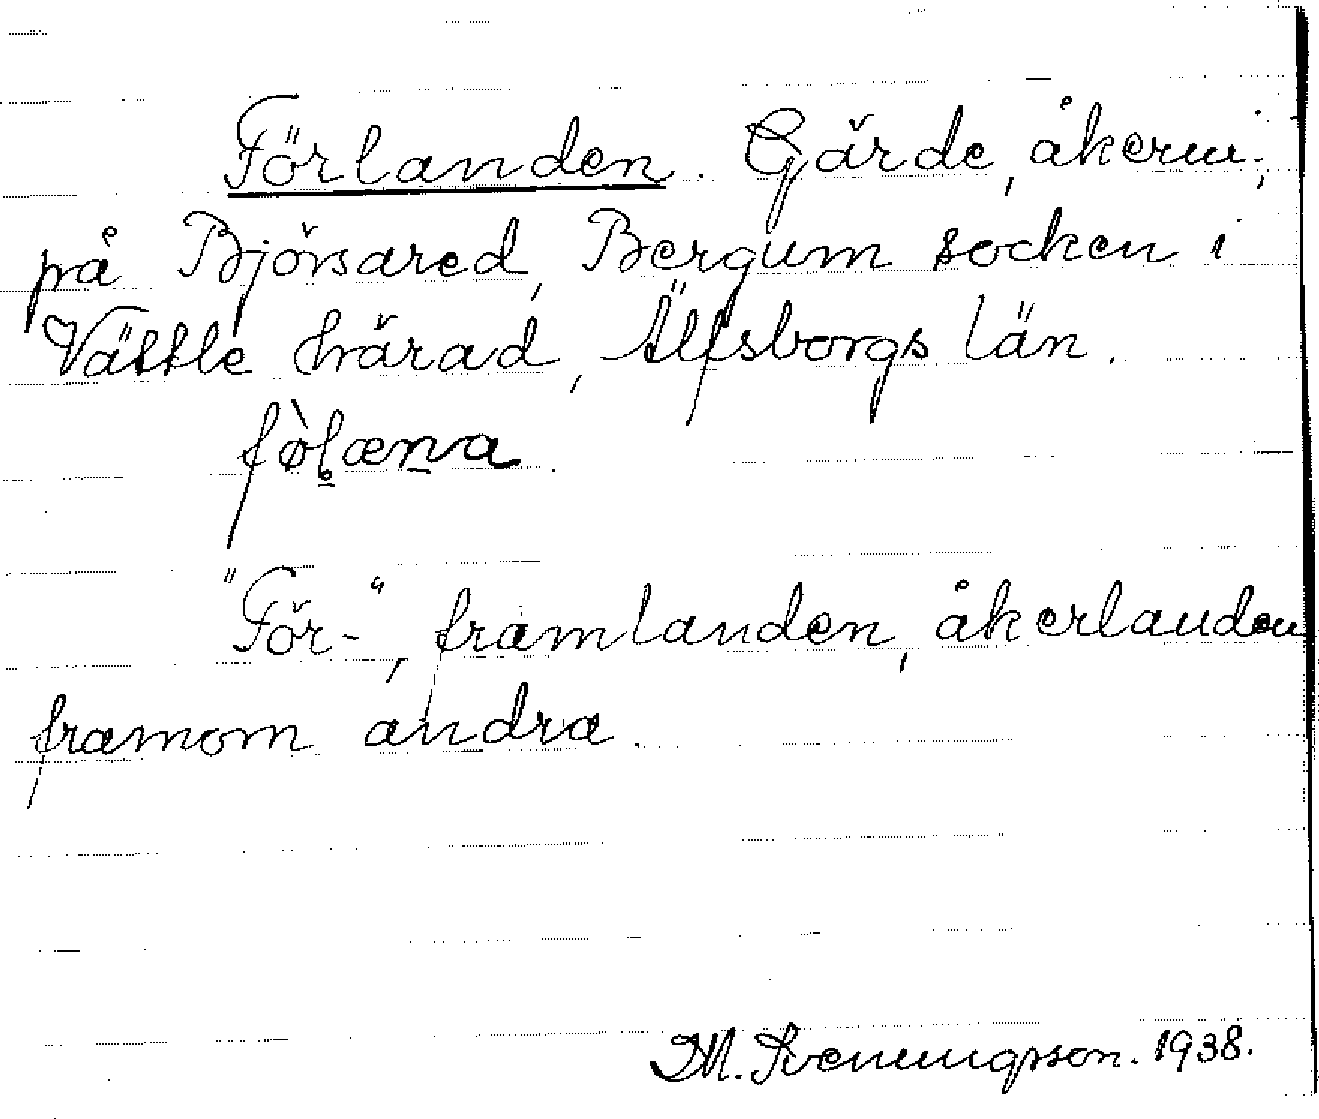 Förlanden. Gärde, åkern;
på Björsared, Bergum socken i
Vättle härad, Älfsborgs län.
fø̀l̥æna.
"För-", framlanden, åkerlanden
framom andra.
M. Svenungsson. 1938.